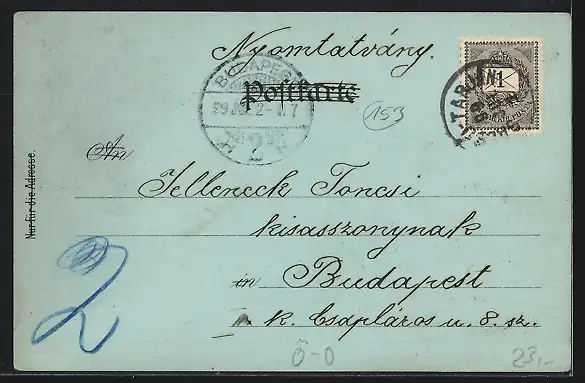 Nyomtatvány.
Postkarte
BUDAPEST
99
2
153
1
MAGYAR KIR. POSTA
An
Jellencek Toncsi
kisasszonynak
in Budapest
k. Csapláros u. 8. sz.
Nur für die Adresse.
2
0-0
23,-